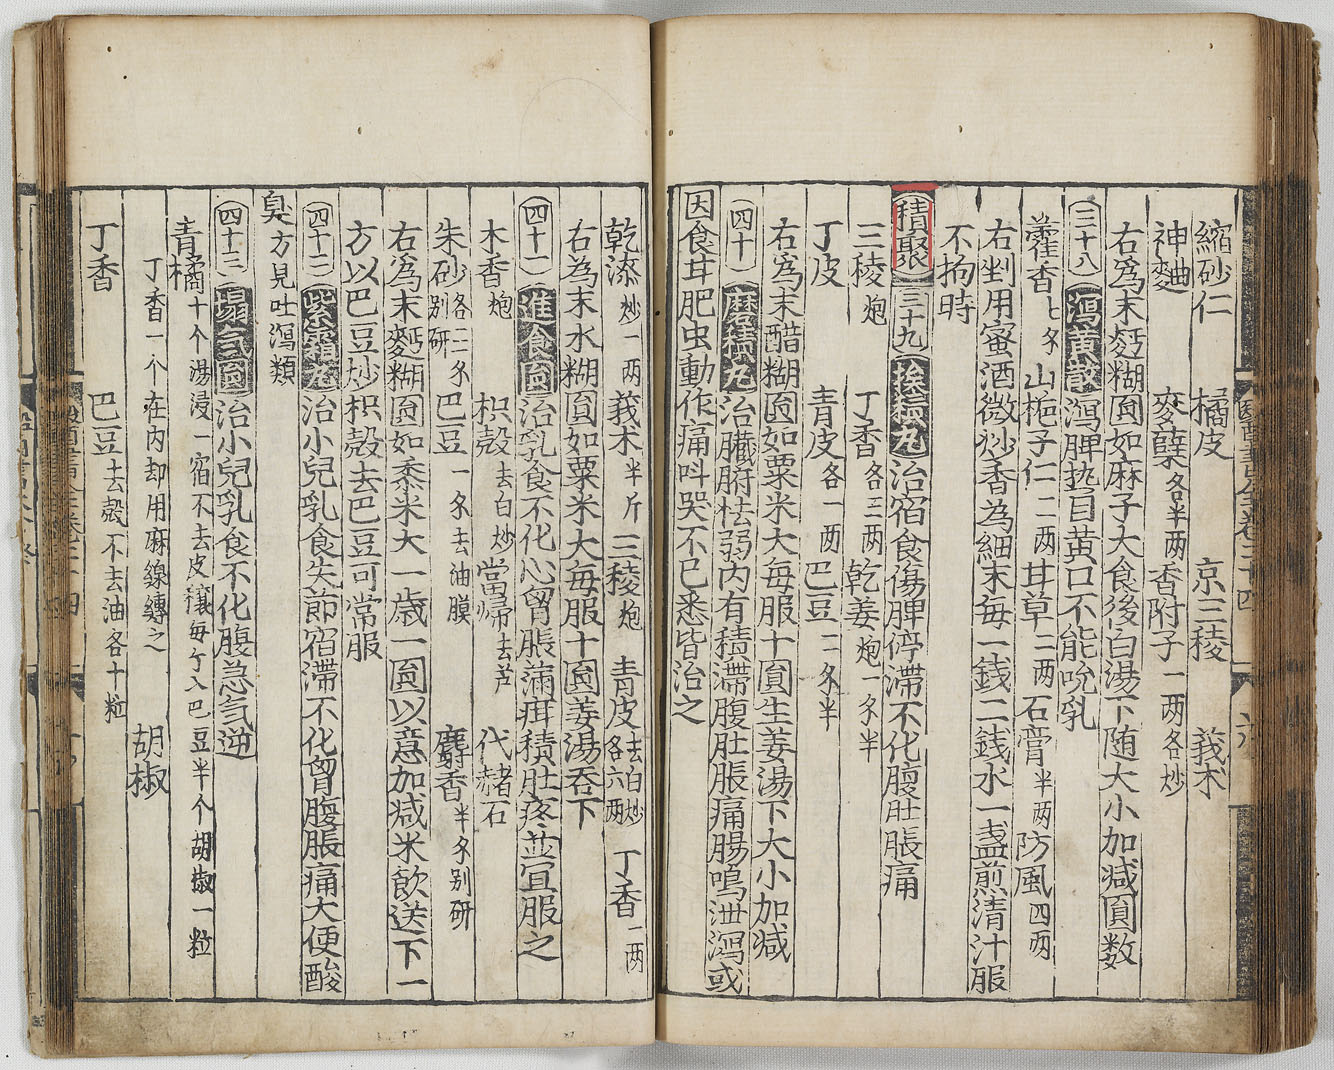 縮砂仁 橘皮 京三稜 莪朮
神麯 麥櫱各半两 香附子一两各炒
右爲末麪糊圎如麻子大食後白湯下随大小加减圎数
三十八 瀉黄散 瀉脾热目黄口不能吮乳
藿香七分 山梔子仁一两 甘草二两 石膏半两 防風四两
右剉用蜜酒微炒香為細末每一錢二錢水一盞煎清汁服
不拘時
積聚 三十九 挨積丸 治宿食傷脾停滯不化腹肚脹痛
三稜炮 丁香各三两 乾姜炮一分半
丁皮 青皮各一两 巴豆一分半
右爲末醋糊圎如粟米大每服十圎生姜湯下大小加减
四十 磨積丸 治臟腑怯弱内有積滯腹肚脹痛腸鳴泄瀉或
因食甘肥虫動作痛呌哭不已悉皆治之
乾漆炒一两 莪朮半斤 三稜炮 青皮去白炒各六两 丁香一两
右為末水糊圎如粟米大每服十圎姜湯吞下
四十一 進食圎 治乳食不化心胷脹滿疳積肚疼並宜服之
木香炮 枳殻去白炒 當歸去芦 代赭石
朱砂各二分别研 巴豆一分去油膜 麝香半分别研
右爲末麪糊圎如黍米大一歳一圎以意加减米飲送下一
方以巴豆炒枳殻去巴豆可常服
四十二 紫霜丸 治小兒乳食失節宿滯不化胷腹脹痛大便酸
臭方見吐瀉類
四十三 塌气圎 治小兒乳食不化腹急气逆
青橘十个湯浸一宿不去皮穰每个入巴豆半个胡椒一粒
丁香一个在内却用麻線纏之 胡椒
丁香 巴豆去殻不去油各十粒